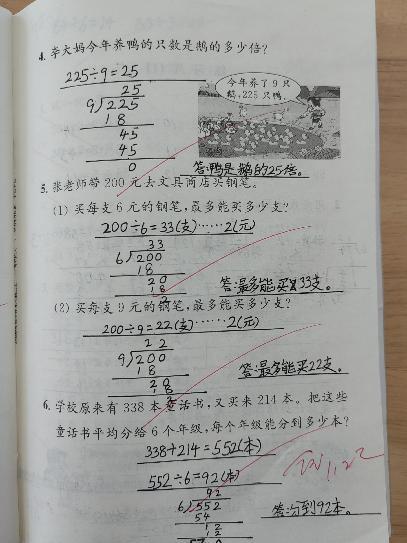 4. 李大妈今年养鸭的只数是鹅的多少倍?
225÷9=25
今年养了9只
鹅,225只鸭。
25
9)225
18
45
45
0
答:鸭是鹅的25倍。
5. 张老师带200元去文具商店买钢笔。
(1) 买每支6元的钢笔,最多能买多少支?
200÷6=33(支)……2(元)
33
6)200
18
20
18
2
答:最多能买33支。
(2) 买每支9元的钢笔,最多能买多少支?
200÷9=22(支)……2(元)
22
9)200
18
20
18
2
答:最多能买22支。
6. 学校原来有338本童话书,又买来214本。把这些
童话书平均分给6个年级,每个年级能分到多少本?
338+214=552(本)
552÷6=92(本)
92
6)552
54
12
12
答:分到92本。